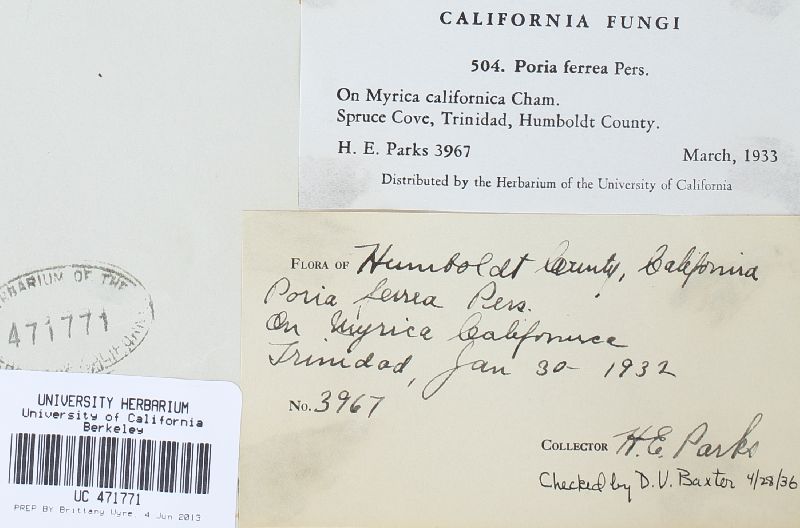 CALIFORNIA FUNGI
504. Poria ferrea Pers.
On Myrica californica Cham.
Spruce Cove, Trinidad, Humboldt County.
H. E. Parks 3967 March, 1933
Distributed by the Herbarium of the University of California
FLORA OF Humboldt County, California
Poria ferrea Pers.
On Myrica Californica
Trinidad, Jan 30 - 1932
No. 3967
COLLECTOR H.E. Parks
Checked by D.V. Baxter 4/28/36
HERBARIUM OF THE
471771
UNIVERSITY HERBARIUM
University of California
Berkeley
UC 471771
PREP BY Brittany Vyre, 4 Jun 2013